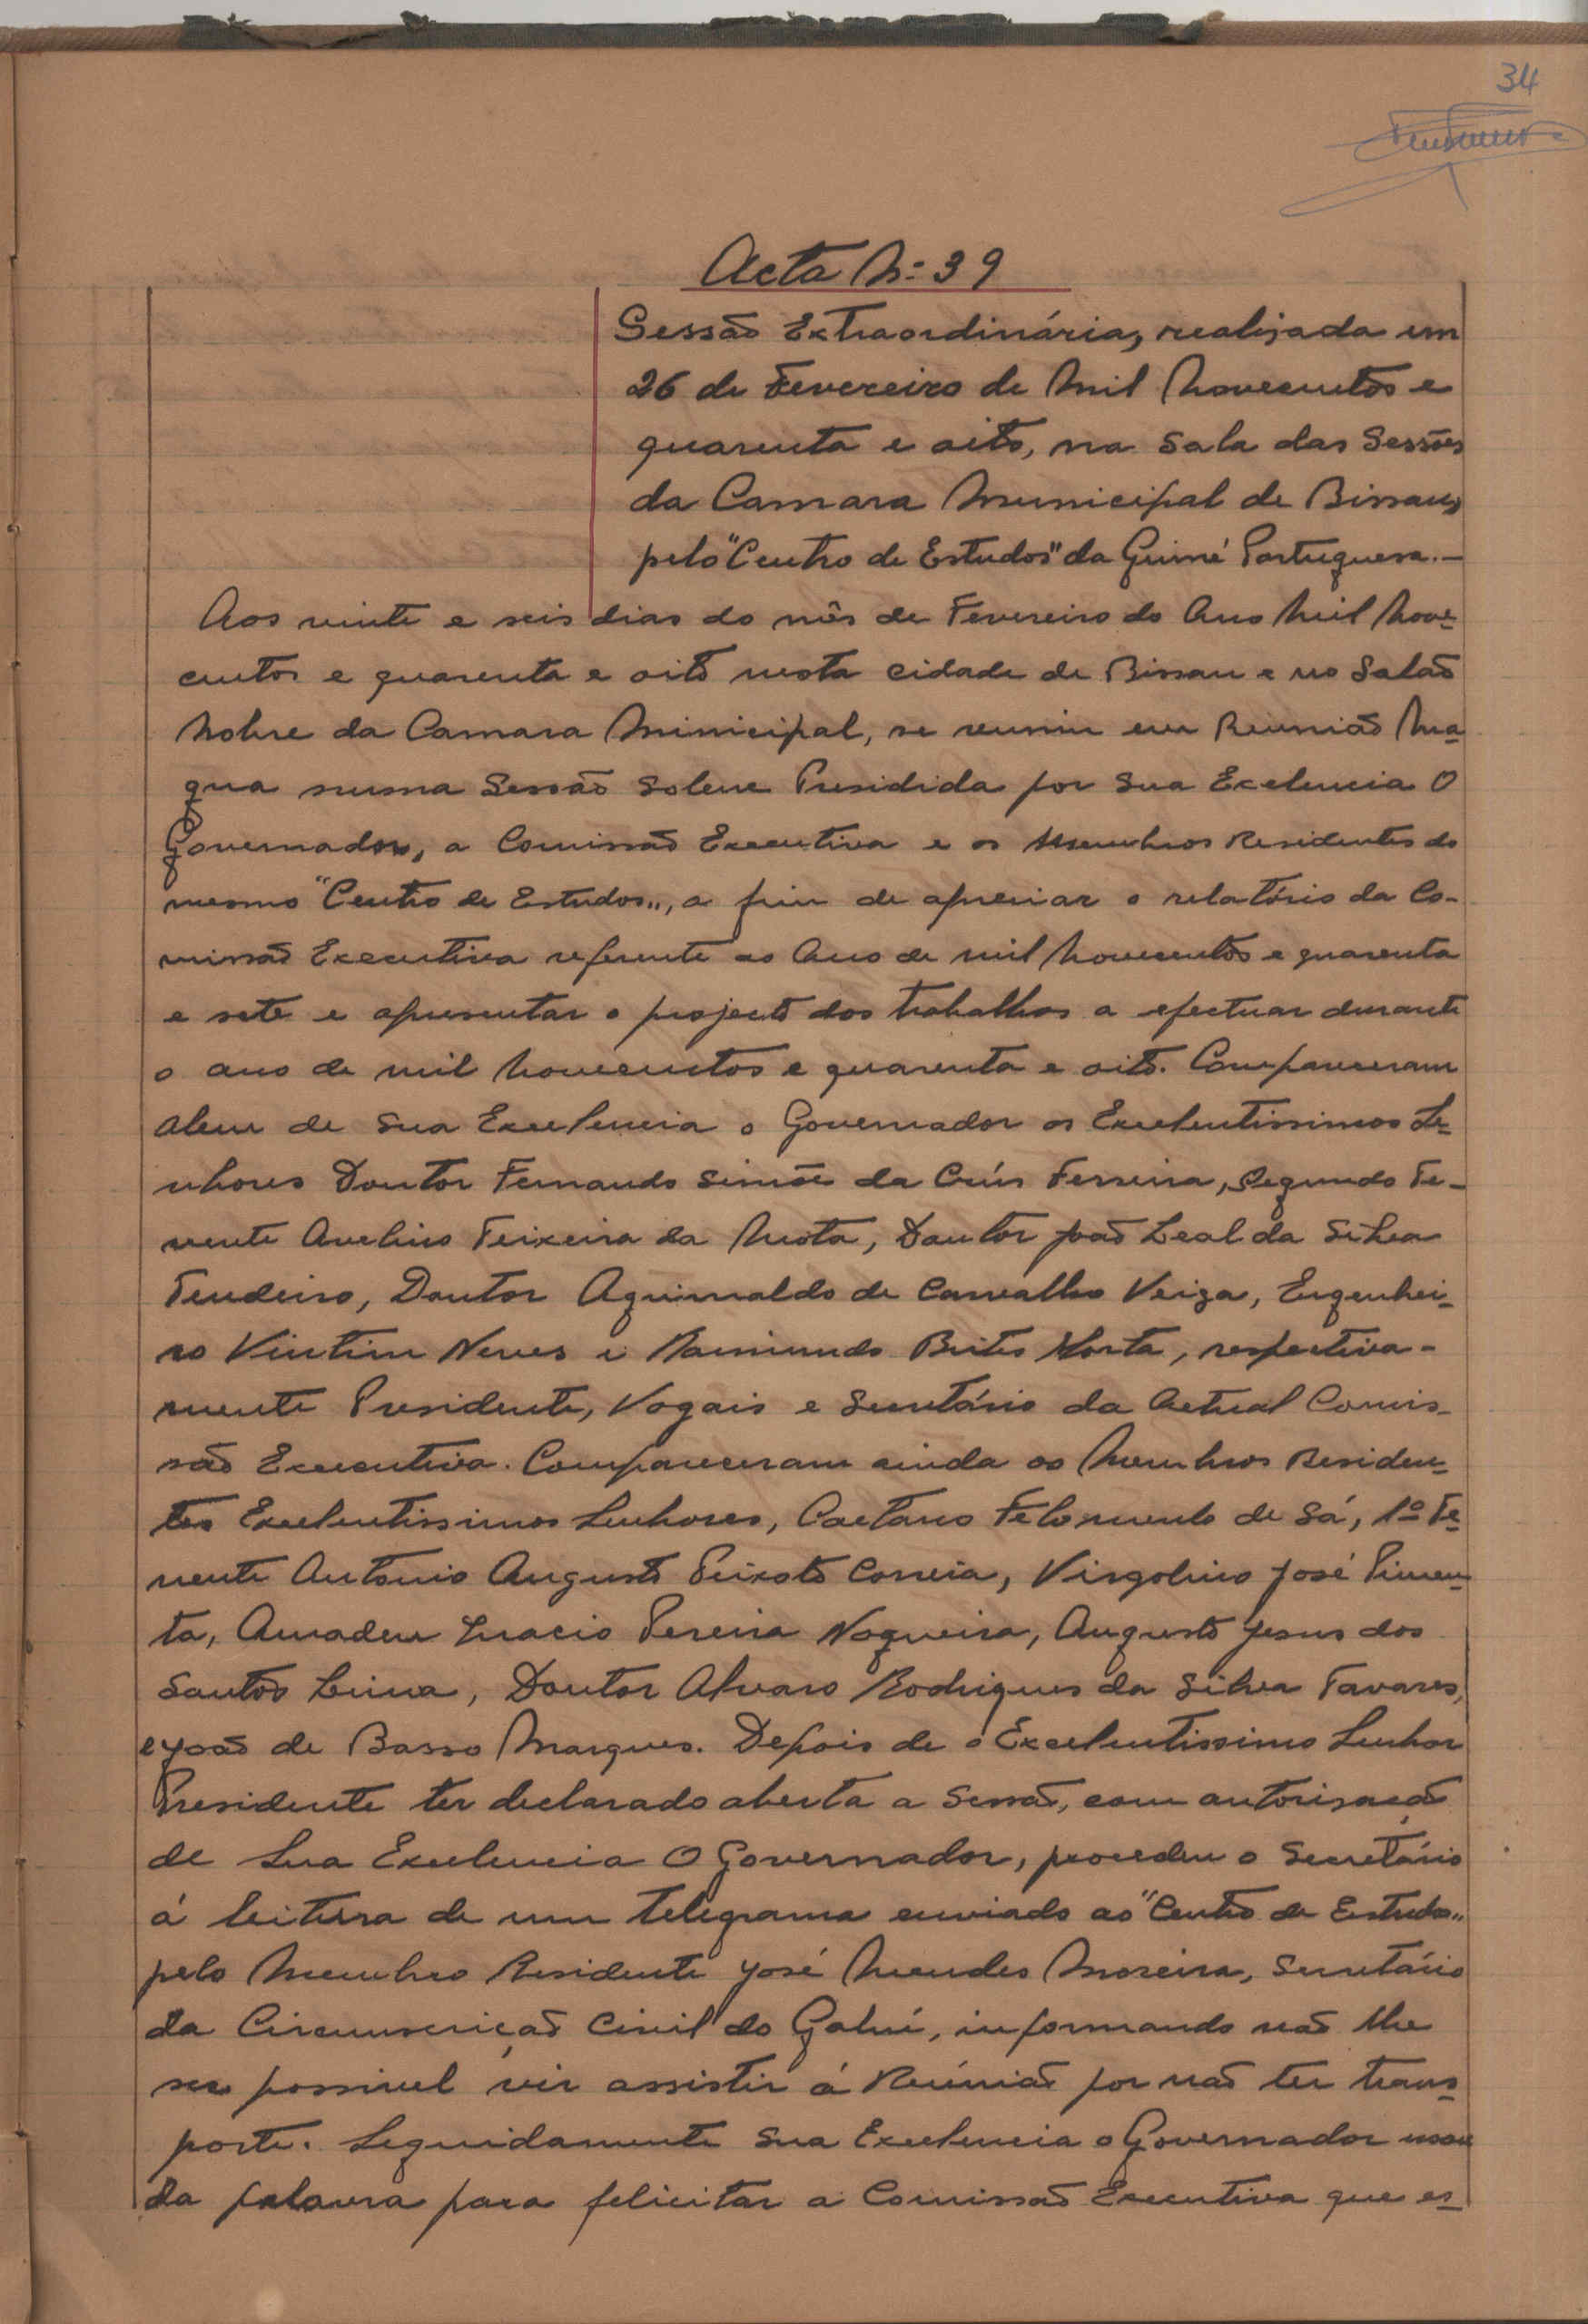 34
Acta N.º 39
Sessão Extraordinária, realizada em
26 de Fevereiro de Mil Novecentos e
quarenta e oito, na Sala das Sessões
da Camara Municipal de Bissau,
pelo "Centro de Estudos" da Guiné Portuguesa.—
Aos vinte e seis dias do mês de Fevereiro do Ano Mil Nove-
centos e quarenta e oito nesta cidade de Bissau e no Salão
Nobre da Camara Municipal, se reuniu em Reunião Ma-
gua numa Sessão Solene Presidida por Sua Excelencia O
Governador, a Comissão Executiva e os Membros Residentes do
mesmo "Centro de Estudos", a fim de apreciar o relatório da Co-
missão Executiva referente ao Ano de mil Novecentos e quarenta
e sete e apresentar o projecto dos trabalhos a efectuar durante
o ano de mil Novecentos e quarenta e oito. Compareceram
alem de Sua Excelencia o Governador os Excelentissimos Se-
nhores Doutor Fernando Simões da Crús Ferreira, Segundo Te-
nente Avelino Teixeira da Mota, Doutor João Leal da Silva
Tendeiro, Doutor Aguinaldo de Carvalho Veiga, Engenhei-
ro Vintim Neves e Raimundo Brites Horta, respectiva-
mente Presidente, Vogais e Secretário da Actual Comis-
são Executiva. Compareceram ainda os Membros Residen-
tes Excelentissimos Senhores, Caetano Felomento de Sá, 1º Te-
nente Antonio Augusto Peixoto Correia, Virgolino José Pimen-
ta, Amadeu Inacio Pereira Nogueira, Augusto Jesus dos
Santos Lima, Doutor Alvaro Rodrigues da Silva Tavares,
e João de Basso Marques. Depois de o Excelentissimo Senhor
Presidente ter declarado aberta a Sessão, com autorisação
de Sua Excelencia O Governador, procedeu o Secretário
á leitura de um telegrama enviado ao "Centro de Estudos"
pelo Membro Residente José Mendes Moreira, Secretário
da Circunscrição Civil do Gabú, informando não lhe
ser possivel vir assistir á Reúnião por não ter trans-
porte. Seguidamente Sua Excelencia o Governador usou
da palavra para felicitar a Comissão Executiva que es-